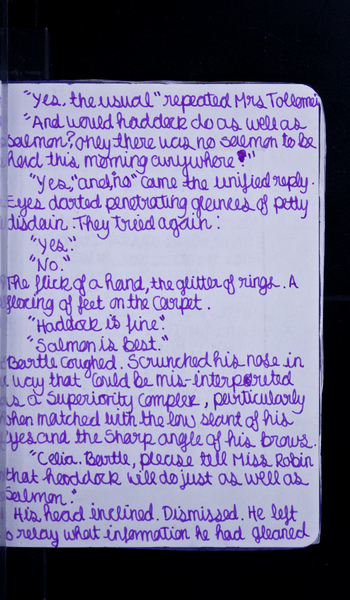 "Yes, the usual" repeated Mrs Tollemei
"And would haddock do as well as
salmon? Only there was no salmon to be
herd this morning anywhere!"
"Yes," and, "no" came the unified reply.
Eyes darted penetrating glances of petty
disdain. They tried again:
"Yes."
"No."
The flick of a hand, the glitter of rings. A
placing of feet on the carpet.
"Haddock is fine."
"Salmon is best."
Bertle coughed. Scrunched his nose in
a way that could be mis-interpreted
as a Superiority Complex, particularly
when matched with the low slant of his
eyes and the sharp angle of his brows.
"Celia. Bertle, please tell Miss Robin
that haddock will do just as well as
Salmon."
His head inclined. Dismissed. He left
to relay what information he had gleaned